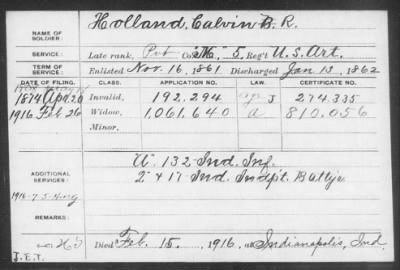 NAME OF SOLDIER: Holland, Calvin B. R.
SERVICE: Late rank, Pvt Co. M. 5, Reg't U.S. Art.
TERM OF SERVICE: Enlisted Nov. 16, 1861 Discharged Jan 13, 1862
DATE OF FILING. CLASS. APPLICATION NO. LAW. CERTIFICATE NO.
1874 Apr. 20 Invalid, 192,294 274.335
1916 Feb 26 Widow, 1,061,640 a 810,056
Minor,
ADDITIONAL SERVICES: 132 Ind. Inf.
2 & 17 Ind.
REMARKS:
Died Feb. 15, 1916, at Indianapolis, Ind.
J.E.T.